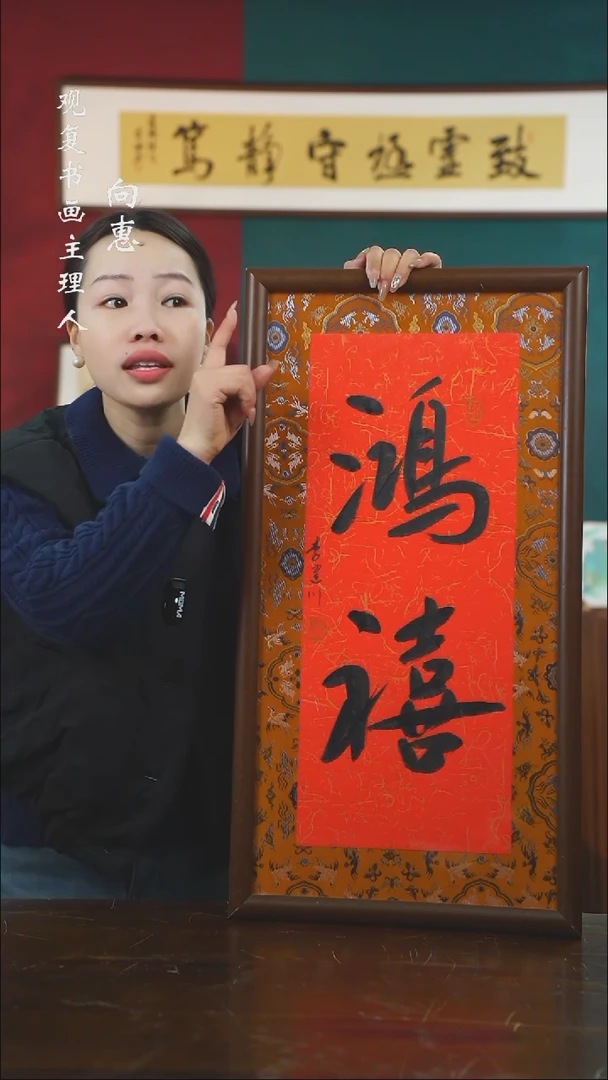 致虚極守静篤
向惠
观复书画主理人
鴻禧